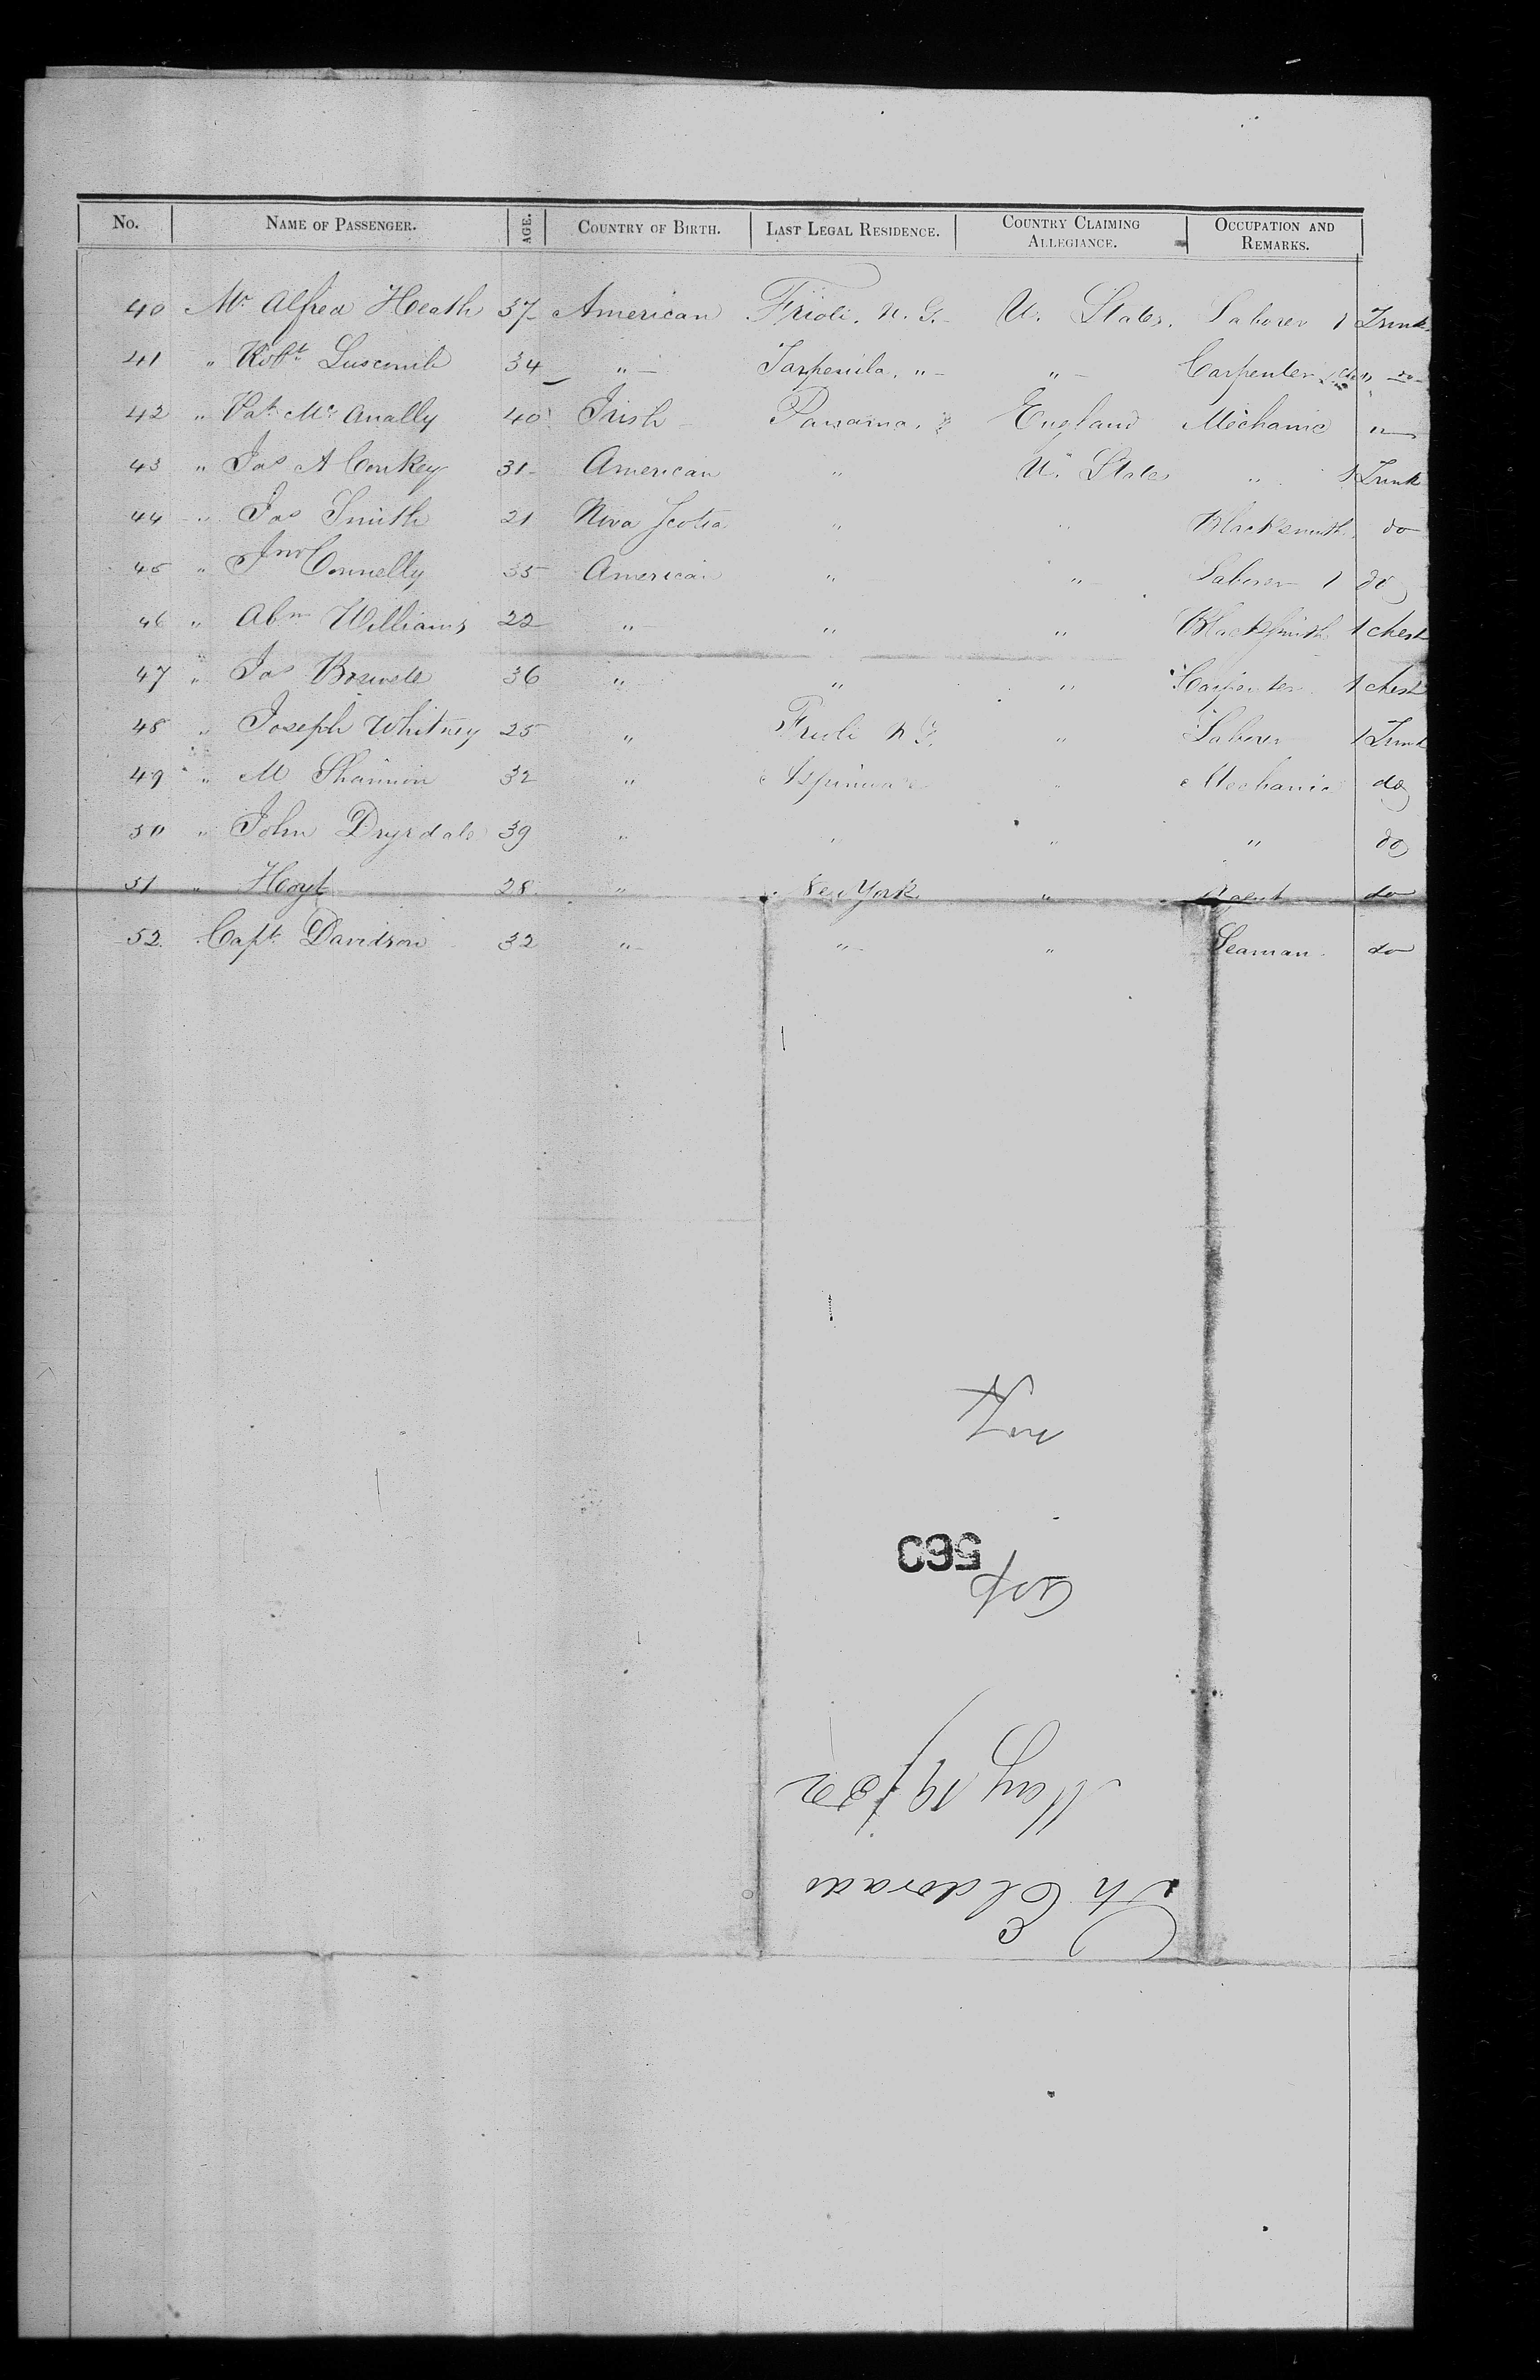 No. NAME OF PASSENGER. AGE. COUNTRY OF BIRTH. LAST LEGAL RESIDENCE. COUNTRY CLAIMING ALLEGIANCE. OCCUPATION AND REMARKS.
40 Mr Alfred Heath 37 American Frioli, N. G. U. States. Laborer 1 Trunk
41 " Robt Luscomb 34 " " " Carpenter
42 " Pat Mc Anally 40 Irish Panama, England Mechanic "
43 " Jas A Conkey 31 American " U. States " 1 Trunk
44 " Jas Smith 21 Nova Scotia " " Blacksmith do
45 " Jno Connelly 35 American " " Laborer 1 do
46 " Abm Williams 22 " " " Blacksmith 1 chest
47 " Jas 36 " " " Carpenter 1 chest
48 " Joseph Whitney 25 " Frioli N G. " Laborer 1 Trunk
49 " M Shannon 32 " Aspinwall " Mechanic do
50 " John Drysdale 39 " " " " do
51 " Hoyt 28 " New York " Agent do
52. Capt. Davidson 32 " " " Seaman do
563
May 19/52
Eldorado